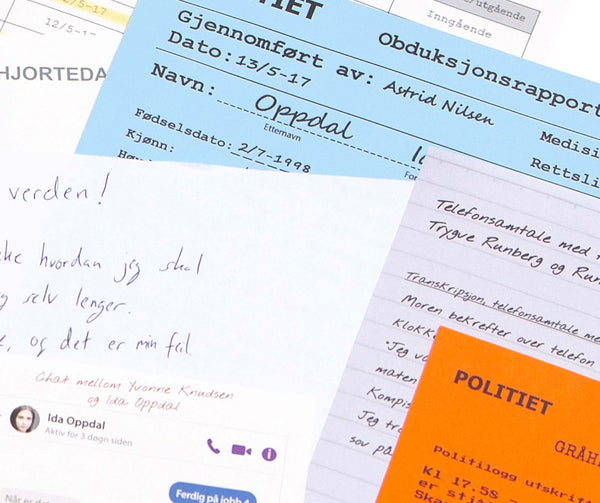 12/5-17
12/5-1
/utgående
Inngående
HJORTEDA
ITIET
Obduksjonsrapport
Gjennomført av: Astrid Nilsen
Dato: 13/5-17
Medisi
Rettsli
Navn: Oppdal
Etternavn
For
Fødselsdato: 2/7-1998
Kjønn:
verden!
kke hvordan jeg skal
selv lenger.
, og det er min feil
Telefonsamtale med
Trygve Runberg og Run
Transkripsjon, telefonsamtale me
Moren bekrefter over telefon
klokk
"Jeg v
maten
Kompis
Jeg tr
sov på
Chat mellom Yvonne Knudsen
og Ida Oppdal
Ida Oppdal
Aktiv for 3 døgn siden
Ferdig på jobb
Når er d
POLITIET
GRÅH
Politilogg utskrift
Kl 17.58
er sti
Ska